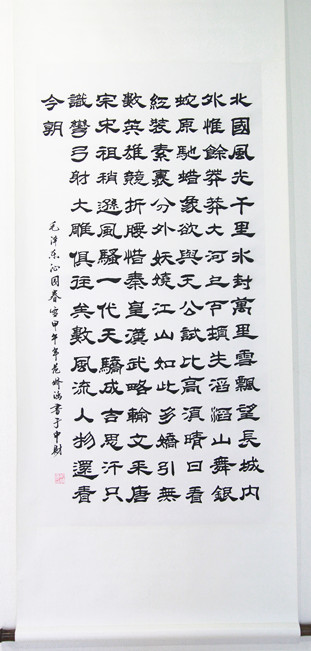 北國風光千里冰封萬里雪飄望長城内
外惟餘莽莽大河上下頓失滔滔山舞銀
蛇原馳蜡象欲與天公試比高須晴日看
紅裝素裹分外妖嬈江山如此多嬌引無
數英雄競折腰惜秦皇漢武略輸文采唐
宗宋祖稍遜風騷一代天驕成吉思汗只
識彎弓射大雕俱往矣數風流人物還看
今朝
毛泽东沁园春雪甲午年書于申財